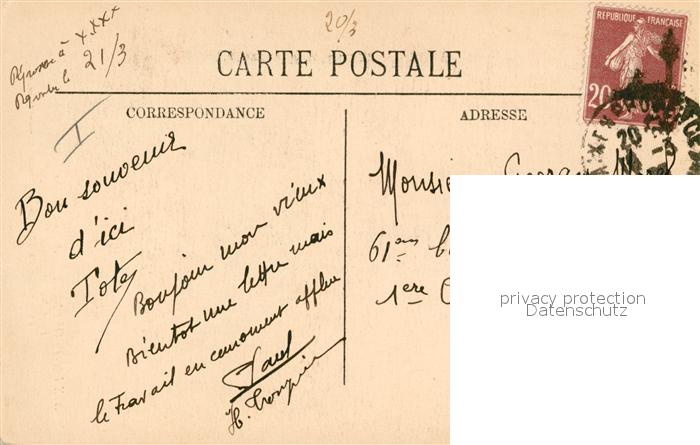 20/3
Réponse à xxxx
21/3
CARTE POSTALE
RÉPUBLIQUE FRANÇAISE
20
CORRESPONDANCE
ADRESSE
I
Bon souvenir
d'ici
Bonjour mon vieux
Bientot une lettre mais
le travail en ce moment afflue
Paul
Monsieur
61eme
1ere C
privacy protection
Datenschutz